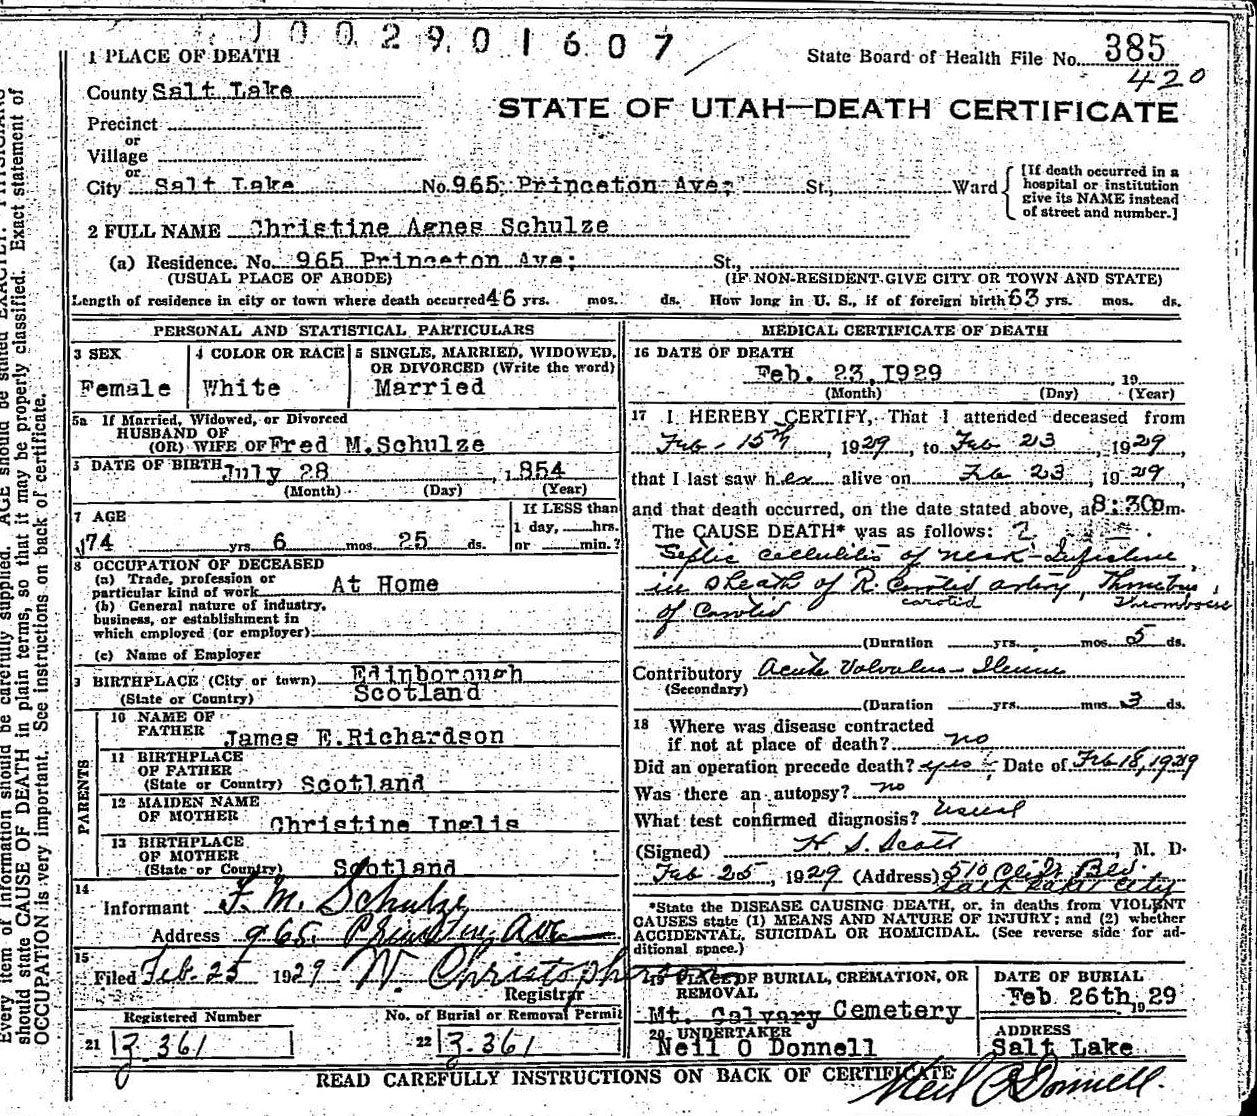 1002901607
State Board of Health File No. 385
420
1 PLACE OF DEATH
County Salt Lake
STATE OF UTAH—DEATH CERTIFICATE
Precinct
or
Village
or
City Salt Lake No. 965 Princeton Ave; St., Ward
[If death occurred in a hospital or institution give its NAME instead of street and number.]
2 FULL NAME Christine Agnes Schulze
(a) Residence. No. 965 Princeton Ave; St.,
(USUAL PLACE OF ABODE) (IF NON-RESIDENT GIVE CITY OR TOWN AND STATE)
Length of residence in city or town where death occurred 46 yrs. mos. ds. How long in U. S., if of foreign birth 63 yrs. mos. ds.
PERSONAL AND STATISTICAL PARTICULARS
3 SEX
Female
4 COLOR OR RACE
White
5 SINGLE, MARRIED, WIDOWED, OR DIVORCED (Write the word)
Married
5a If Married, Widowed, or Divorced
HUSBAND OF
(OR) WIFE OF Fred M.Schulze
DATE OF BIRTH July 28 , 1854
(Month) (Day) (Year)
7 AGE
74 yrs. 6 mos. 25 ds.
If LESS than
1 day, hrs.
or min.?
8 OCCUPATION OF DECEASED
(a) Trade, profession or
particular kind of work At Home
(b) General nature of industry,
business, or establishment in
which employed (or employer)
(c) Name of Employer
BIRTHPLACE (City or town) Edinborough
(State or Country) Scotland
PARENTS
10 NAME OF
FATHER James E.Richardson
11 BIRTHPLACE
OF FATHER
(State or Country) Scotland
12 MAIDEN NAME
OF MOTHER Christine Inglis
13 BIRTHPLACE
OF MOTHER
(State or Country) Scotland
14
Informant F. M. Schulze
Address 965 Princeton Ave
15
Filed Feb. 25 1929 W. Christopherson
Registrar
Registered Number
21 3.361
No. of Burial or Removal Permit
22 3.361
MEDICAL CERTIFICATE OF DEATH
16 DATE OF DEATH
Feb. 23, 1929 , 19
(Month) (Day) (Year)
17 I HEREBY CERTIFY, That I attended deceased from
Feb - 15th , 1929, to Feb 23 1929
that I last saw her alive on Feb 23, 1929,
and that death occurred, on the date stated above, at 8:30 m.
The CAUSE DEATH* was as follows:
Septic cellulitis of neck -
in sheath of R. Carotid artery, Thrombus
carotid Thrombosis
of Carotid
(Duration yrs. mos. 5 ds.
Contributory Acute Volvulus - Ileum
(Secondary)
(Duration yrs. mos. 3 ds.
18 Where was disease contracted
if not at place of death? no
Did an operation precede death? yes Date of Feb 18, 1929
Was there an autopsy? no
What test confirmed diagnosis? usual
(Signed) H S. Scott , M. D.
Feb 25, 1929 (Address) 510 Clift Bld.
Salt Lake City
*State the DISEASE CAUSING DEATH, or, in deaths from VIOLENT
CAUSES state (1) MEANS AND NATURE OF INJURY; and (2) whether
ACCIDENTAL, SUICIDAL OR HOMICIDAL. (See reverse side for ad-
ditional space.)
19 PLACE OF BURIAL, CREMATION, OR
REMOVAL
Mt. Calvary Cemetery
DATE OF BURIAL
Feb 26th, 19 29
20 UNDERTAKER
Neil O Donnell
ADDRESS
Salt Lake
READ CAREFULLY INSTRUCTIONS ON BACK OF CERTIFICATE
Neil O'Donnell.
Every item of information should be carefully supplied. AGE should be stated EXACTLY. PHYSICIANS
should state CAUSE OF DEATH in plain terms, so that it may be properly classified. Exact statement of
OCCUPATION is very important. See instructions on back of certificate.